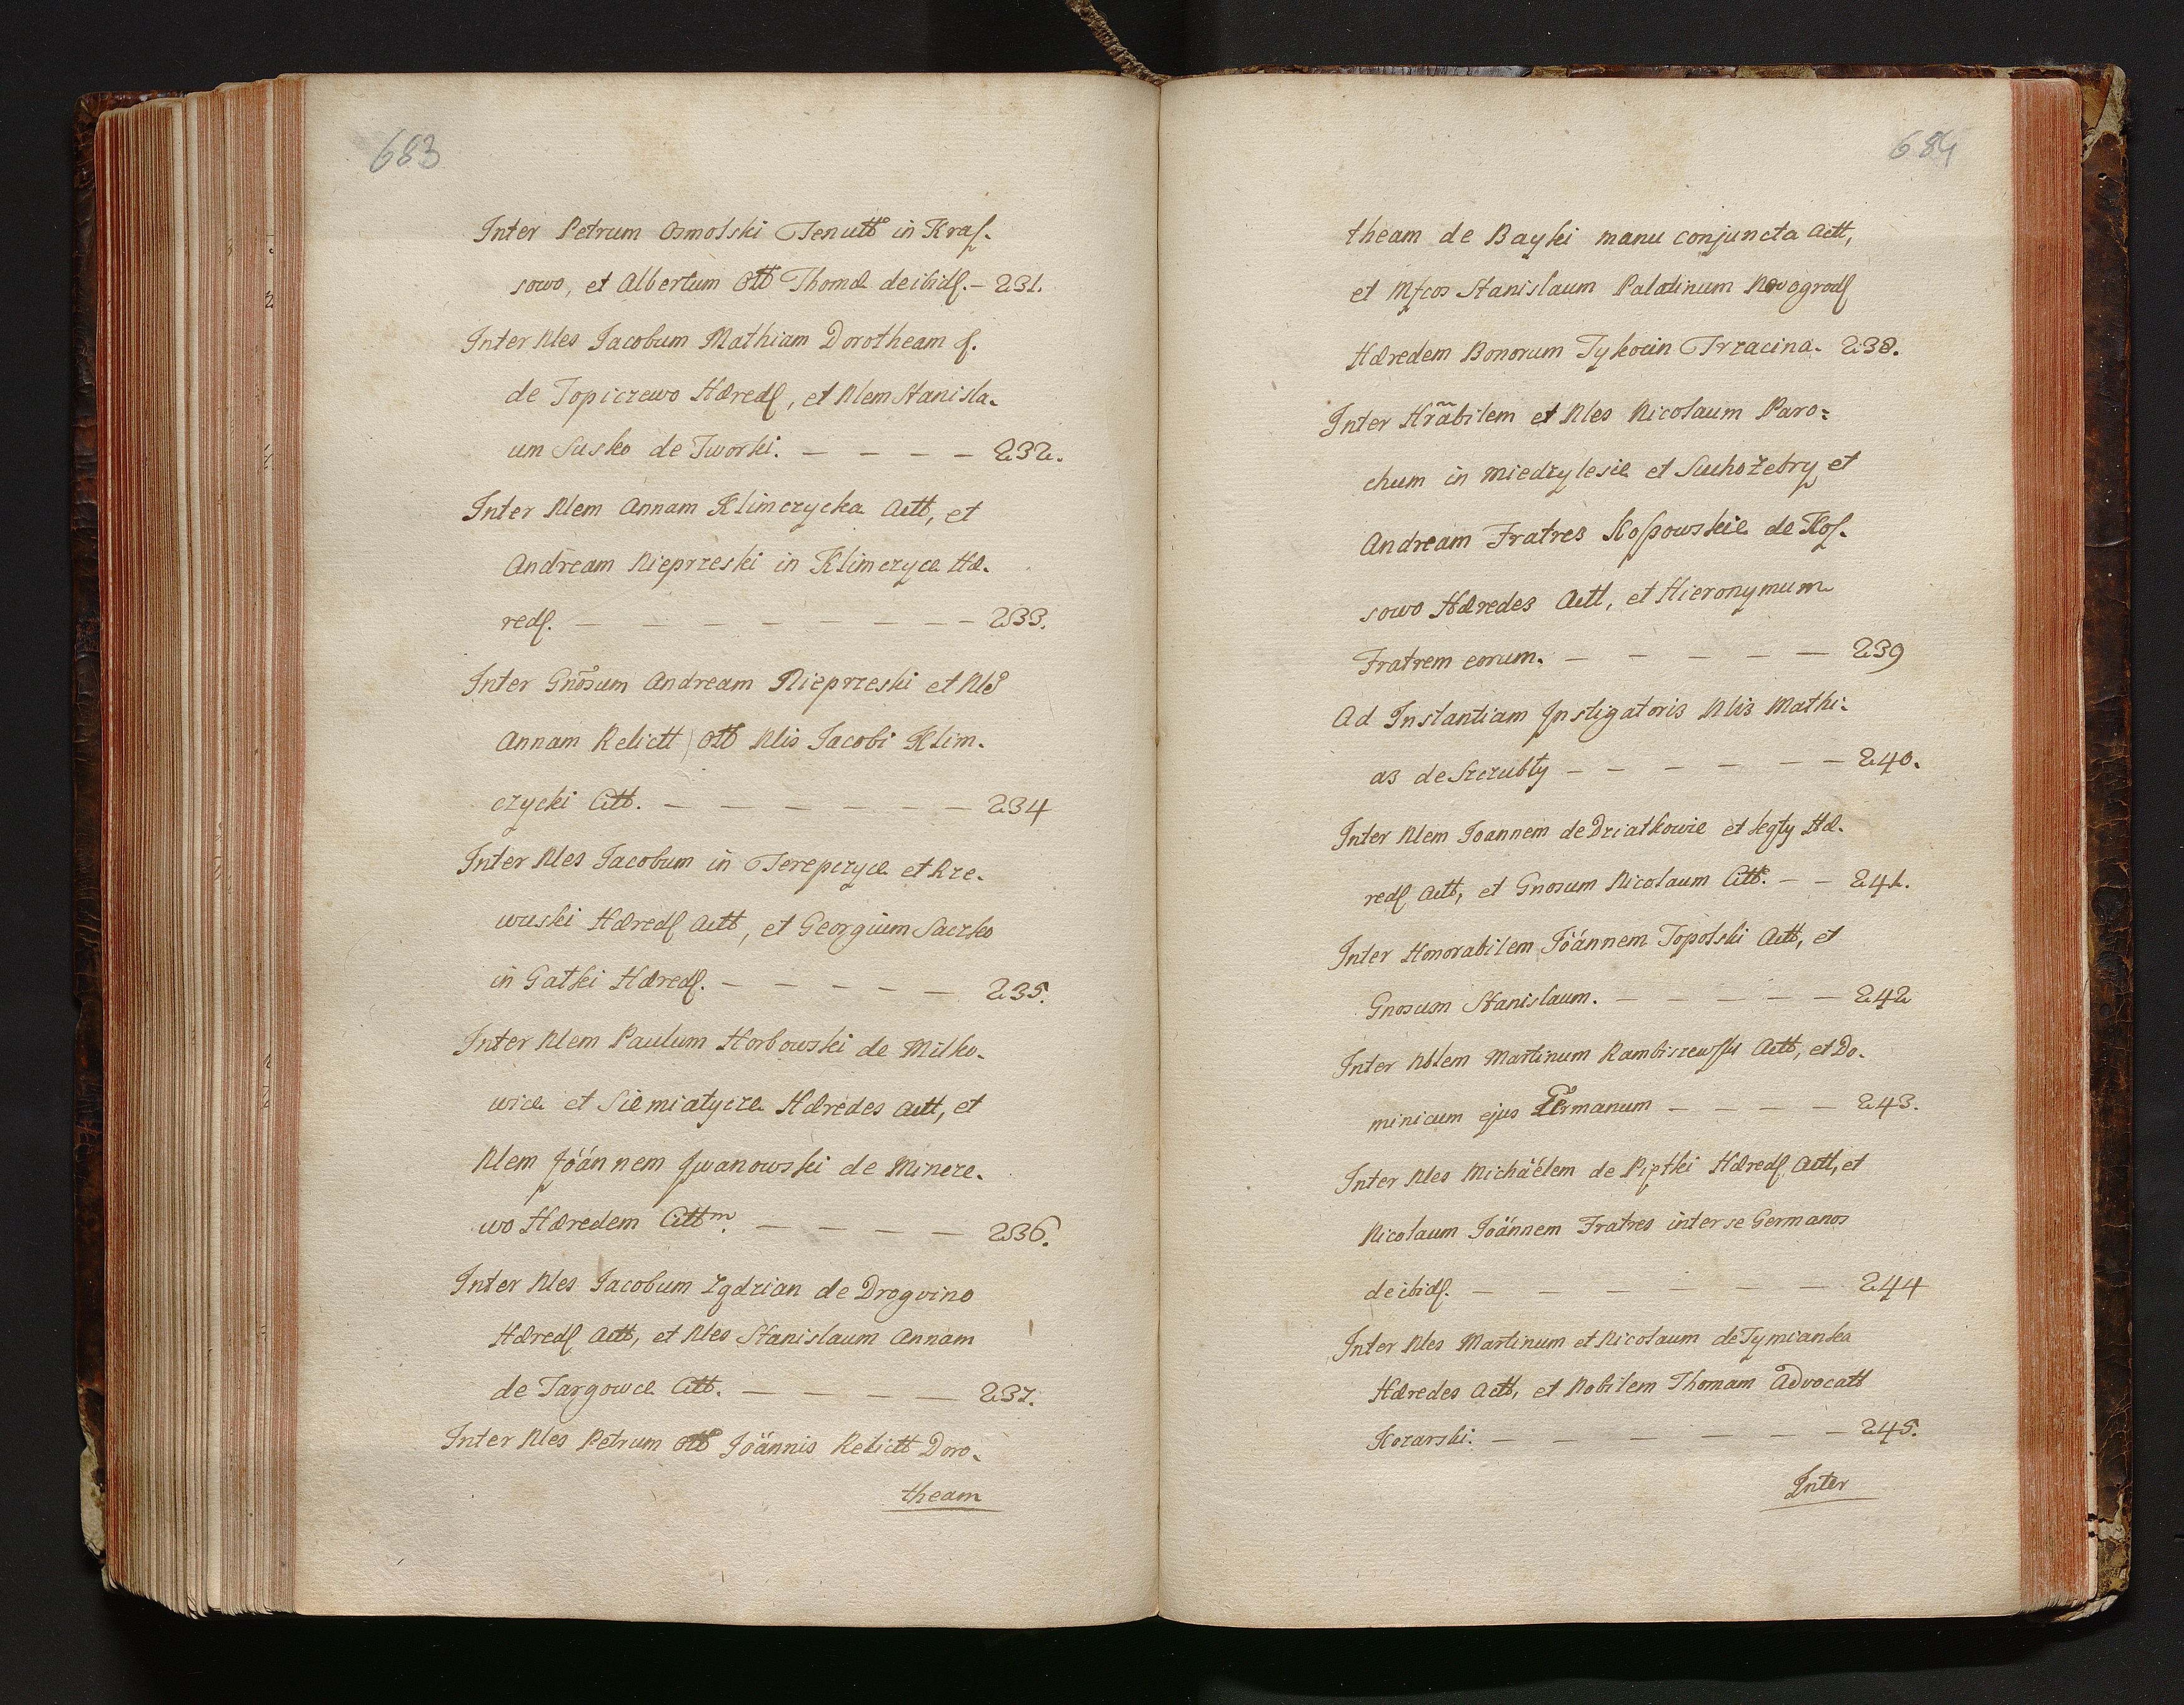 683
Inter Petrum Osmolski Tenutt in Kras-
sowo, et Albertum Ott Thomæ de ibid. - 231.
Inter Nles Jacobum Mathiam Dorotheam f.
de Topiczewo Hæred, et Nlem Stanisla-
um Susko de Tworki. - - - - 232.
Inter Nlem Annam Klimczycka Actt, et
Andream Nieprzeski in Klimczyce Hæ-
red. - - - - - - - - 233.
Inter Gnosum Andream Nieprzeski et Nle
Annam Relictt Ott Nlis Jacobi Klim-
czycki Citt. - - - - - - 234
Inter Nles Jacobum in Terepczyce et Rze-
wuski Hæred Actt, et Georgium Saczko
in Gatki Hæred. - - - - - 235.
Inter Nlem Paulum Horbowski de Milko-
wice et Siemiatycze Hæredes Actt, et
Nlem Joánnem Jwanowski de Mincze-
wo Hæredem Cittm. - - - - 236.
Inter Nles Jacobum Zędzian de Drogvino
Hæred Actt, et Nles Stanislaum Annam
de Targowce Citt. - - - - 237.
Inter Nles Petrum Ott Joánnis Relictt Doro-
theam
684
theam de Bayki manu conjuncta Actt,
et Mfcos Stanislaum Palatinum Novogrod
Hæredem Bonorum Tykocin Trzacina. 238.
Inter Hrãbilem et Nles Nicolaum Paro-
chum in Miedzylesie et Suchożebry et
Andream Fratres Kossowskie de Kos-
sowo Hæredes Actt, et Hieronymum
Fratrem eorum. - - - - - 239
Ad Instantiam Jnstigatoris Nlis Mathi-
as de Szczubły - - - - - - 240.
Inter Nlem Joannem de Dziatkowie et Hæ-
red Actt, et Gnosum Nicolaum Citt. - - 241.
Inter Honorabilem Joánnem Topolski Actt, et
Gnosum Stanislaum. - - - - - 242
Inter Nblem Martinum Rambiszewski Actt, et Do-
minicum ejus Germanum - - - - 243.
Inter Nles Michaélem de Hæred Actt, et
Nicolaum Joánnem Fratres inter se Germanos
de ibid. - - - - - - 244
Inter Nles Martinum et Nicolaum de Tymianka
Hæredes Actt, et Nobilem Thomam Advocatt
Kozarski. - - - - - - - 245.
Inter